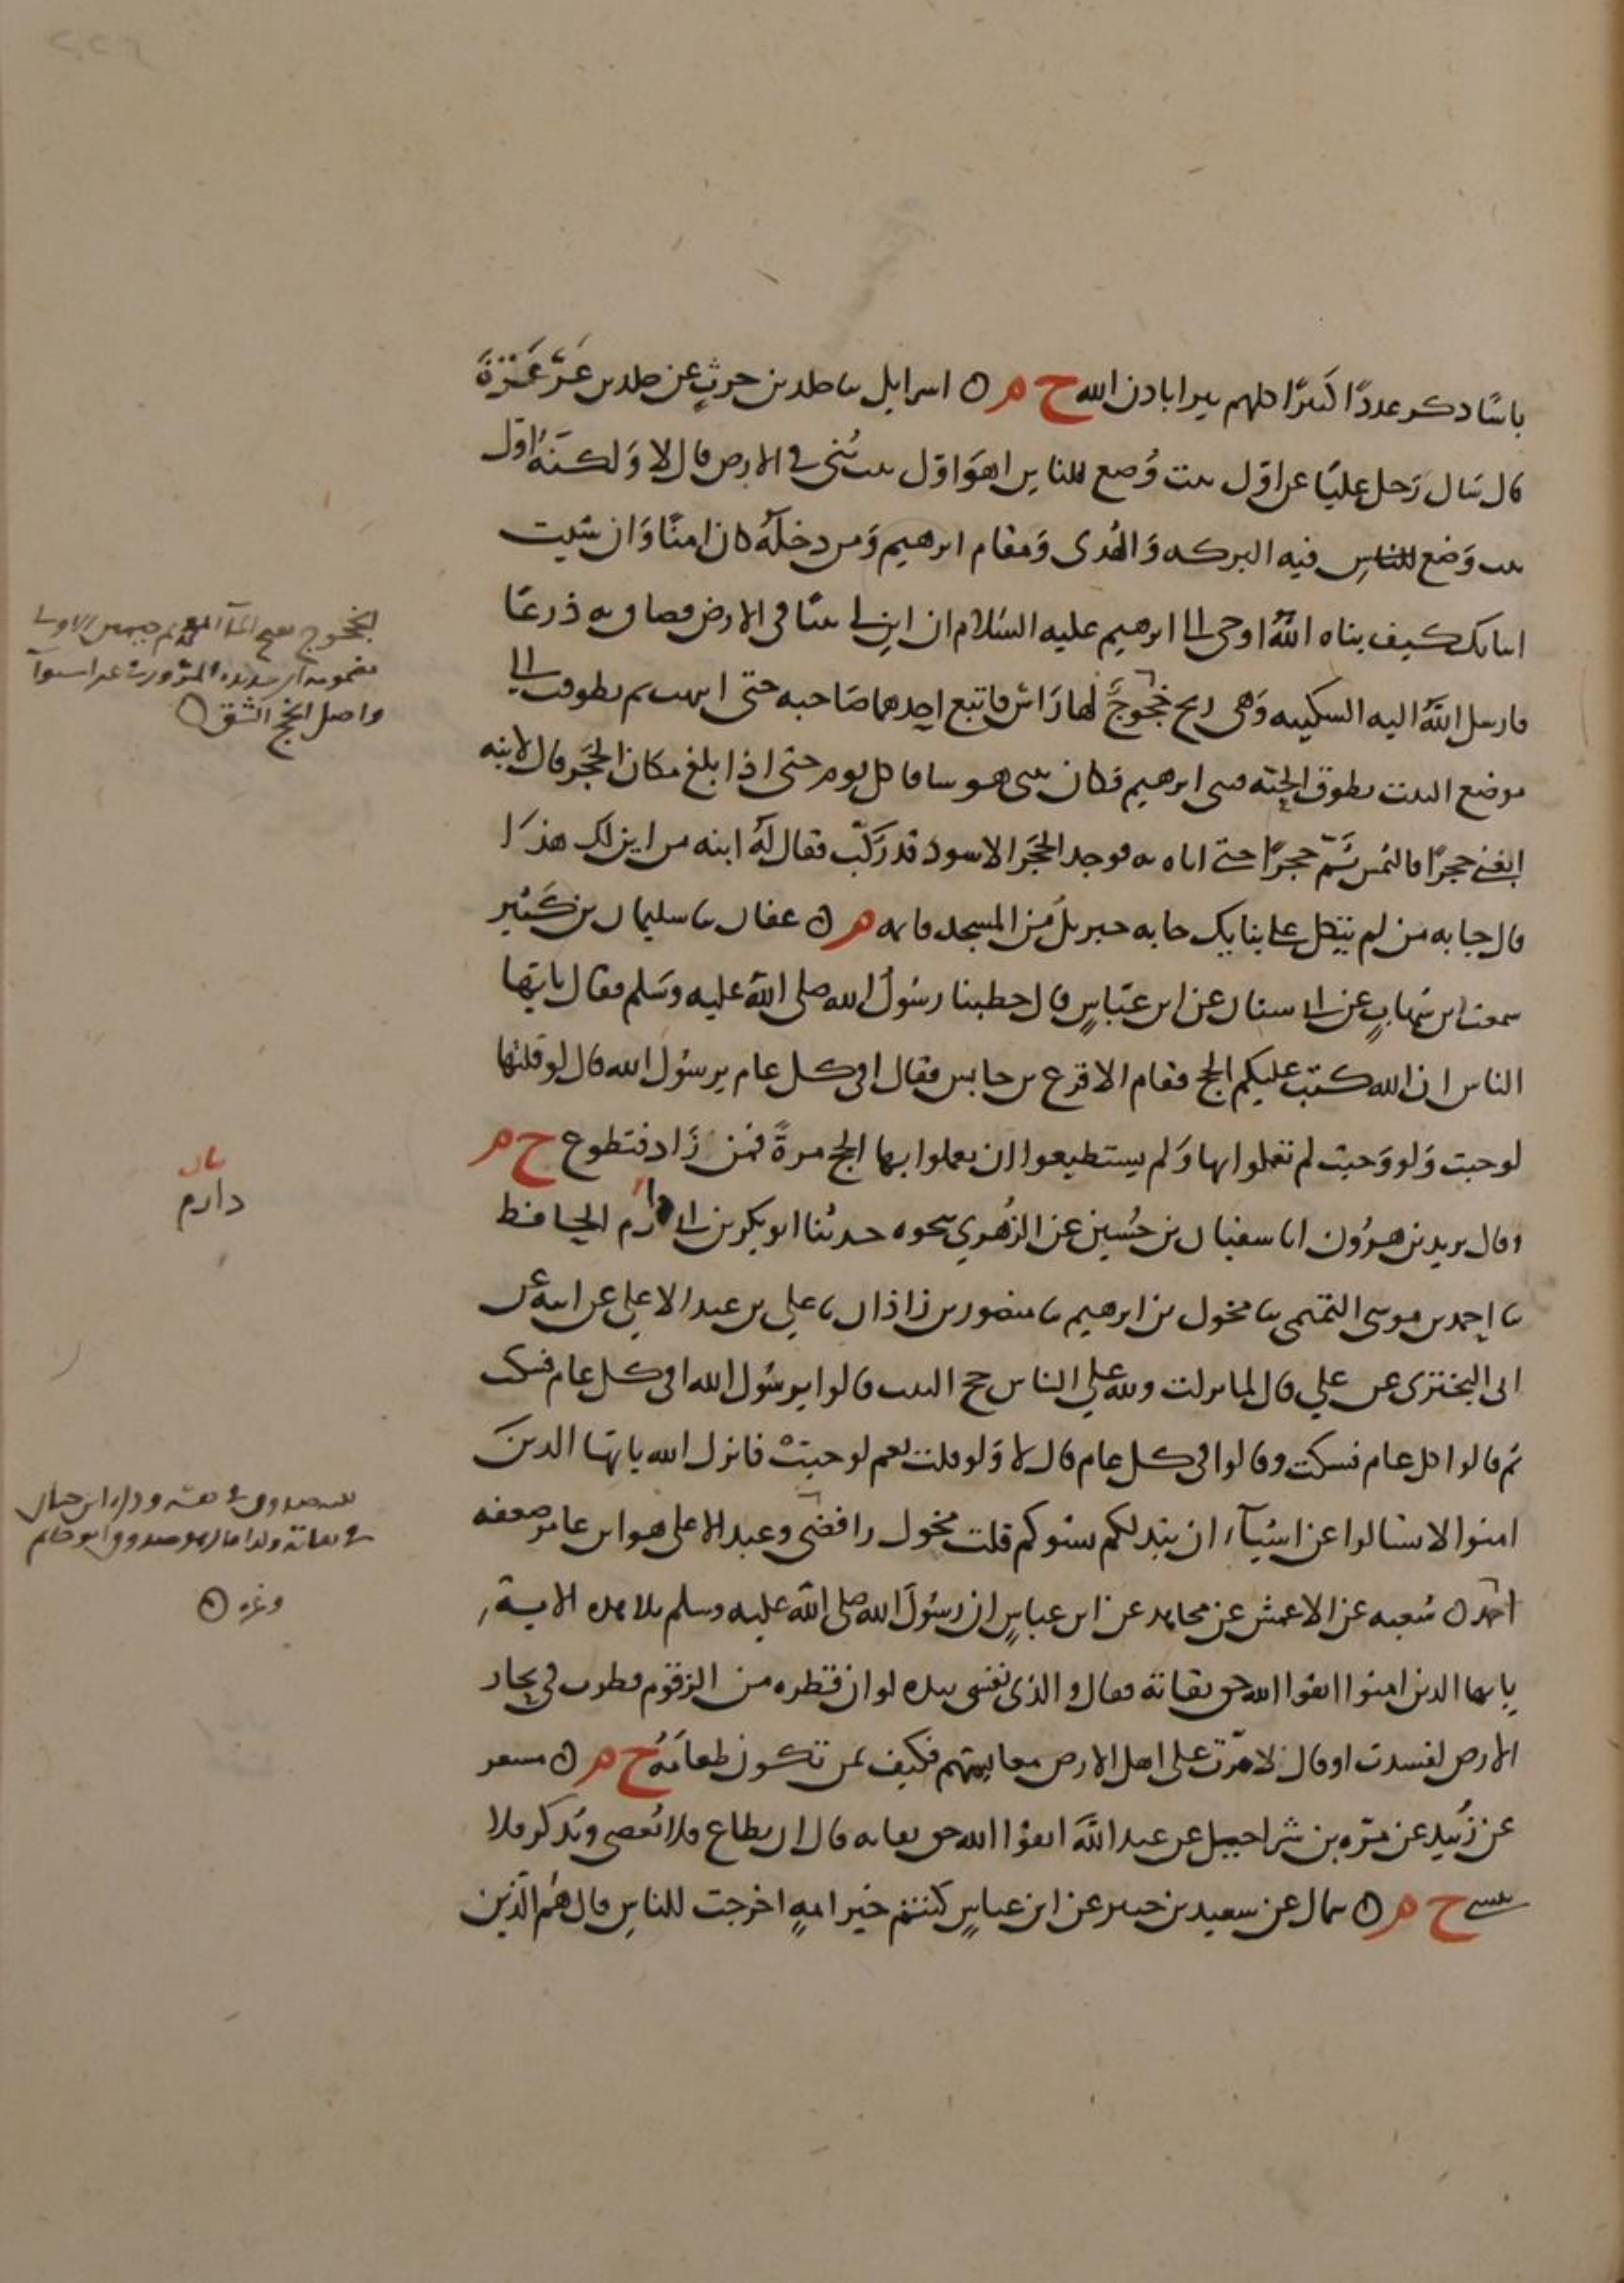 باسًا دكر عددًا كثيرًا كلهم يبرا باذن الله ح م ○ اسرايل نا خلد بن حرثٍ عن خلد بن عَرْعَرَةَ
قال سَال رَجل عليًا عن اوّل بيت وُضع للناسِ اهوَ اوّل بيت بُنيَ في الارض قال لا وَلكنهُ اوّل
بيت وَضع للناسِ فيه البركه وَالهُدى وَمقام ابرهيم وَمن دخلهُ كان امنًا وَان شيت
انباتك كيف بناه اللهُ اوحى الى ابرهيم عليه السَلام ان ابنِ لي بيتًا في الارض فضاق به ذرعًا
فارسل اللهُ اليه السكينه وَهي ريح خجُوجٌ لها رَاس فاتبع احدهما صَاحبه حتى انتهت ثم تطوقت الى
موضع البيت تطوق الحيّه فبنى ابرهيم فكان يبنى هو ساقا كل يوم حتى اذا بلغ مكان الحجَر قال لابنه
ابغني حجرًا فالتمس ثَمّ حجرًا حتى اتاه به فوجد الحجَر الاسود قد رَكّب فقال لهُ ابنه من اين لك هذا
قال جا به من لم يتكل على بنايك جا به جبريلُ من المسجد فاتمه م ○ عفان نا سليمان بن كَثير
سمعت ابن شهابٍ عن ابي سنان عن ابن عبّاسٍ قال خطبنا رسُولُ الله صلى الله عليه وسَلم فقال يايها
الناس ان الله كتب عليكم الحج فقام الاقرع بن حابس فقال افي كل عام يرسُول الله قال لو قلتها
لوجبت وَلو وَجبت لم تعملوا بها وَلم يستطيعوا ان يعملوا بها الحج مرةً فمن زَاد فتطوع ح م
وقال يزيد بن هرُون انا سفيان بن حُسين عن الزُهري نحوه حدثنا ابو بكر بن ابي دارم الحافظ
نا احمد بن موسى التميمى نا مخول بن ابرهيم نا منصور بن زاذان نا علي بن عبد الاعلى عن ابيه عن
ابى البختري عن علي قال لما نزلت ولله على الناس حج البيت قالوا يرسُول الله افي كل عام فسكت
ثم قالوا اكل عام فسكت وقالوا في كل عام قال لا وَلو قلت نعم لوجبَتْ فانزل الله يايها الدينَ
امنوا لا تسالوا عن اشيآء ان تبد لكم تسوكم قلت مخول رافضي وعبد الاعلى هو ابن عامر ضعفه
احمد ○ شعبه عن الاعمش عن مجاهد عن ابن عباسٍ ان رسُولَ الله صلى الله عليه وسلم تلا هده الايةَ
يايها الدين امنوا اتقوا الله حق تقاته فقال والذى نفسى بيده لو ان قطره من الزقوم قطرت في بحار
الارض لفسدت او قال لامرّت على اهل الارض معايشهم فكيف بمن تكون طعامَهُ ح م ○ مسعر
عن زُبيد عن مرّه بن شراحيل عن عبد الله اتقوا الله حق تقاته قال ان يطاع فلا يُعصى ويُذكر فلا
ينسى ح م ○ سماك عن سعيد بن جبير عن ابن عباسٍ كنتم خير امهٍ اخرجت للناسِ قال هُم الذين
الخجوج
واصل الخج الشق ○
دارم
وغيره ○